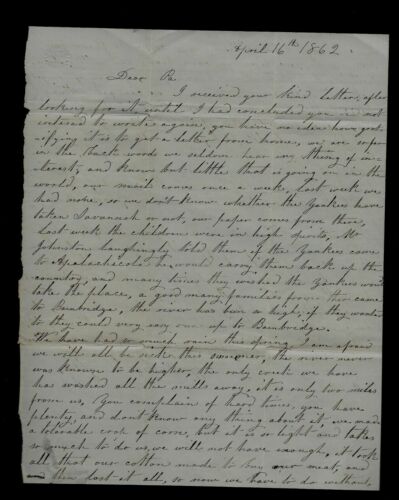 April 16th 1862.
Dear Pa
I received your kind letter, after
looking for it until I had concluded you did not
intend to write again, you have no idea how grat-
ifying it is to get a letter from home, we are so far
in the back woods we seldom hear any thing of in-
terest, and know but little that is going on in the
world, our mail comes once a week, last week we
had none, so we don't know whether the Yankees have
taken Savannah or not, our paper comes from there,
Last week the children were in high spirits, Mr
Johnston laughingly told them if the Yankees came
to Apalachicola he would carry them back up the
country, and many times they wished the Yankees would
take the place, a good many families from there came
to Bainbridge, the river has bin so high, if they wanted
to they could very easy come up to Bainbridge.
We have had so much rain this spring I am afraid
we will all be sick this summer, the river never
was known to be higher, the only creek we have
has washed all the mills away, it is only two miles
from us, You complain of hard times, you have
plenty, and dont know any thing about it, we made
a tolerable crop of corn, but it is so light and takes
so much to do us, we will not have enough, it took
all that our cotton made to buy our meat, and
then lost it all, so now we have to do without,